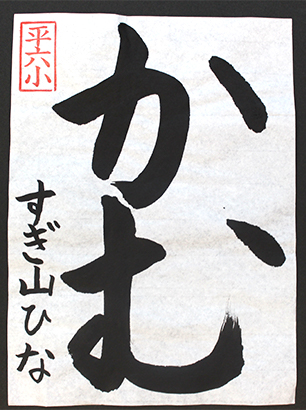 かむ
平六小
すぎ山ひな